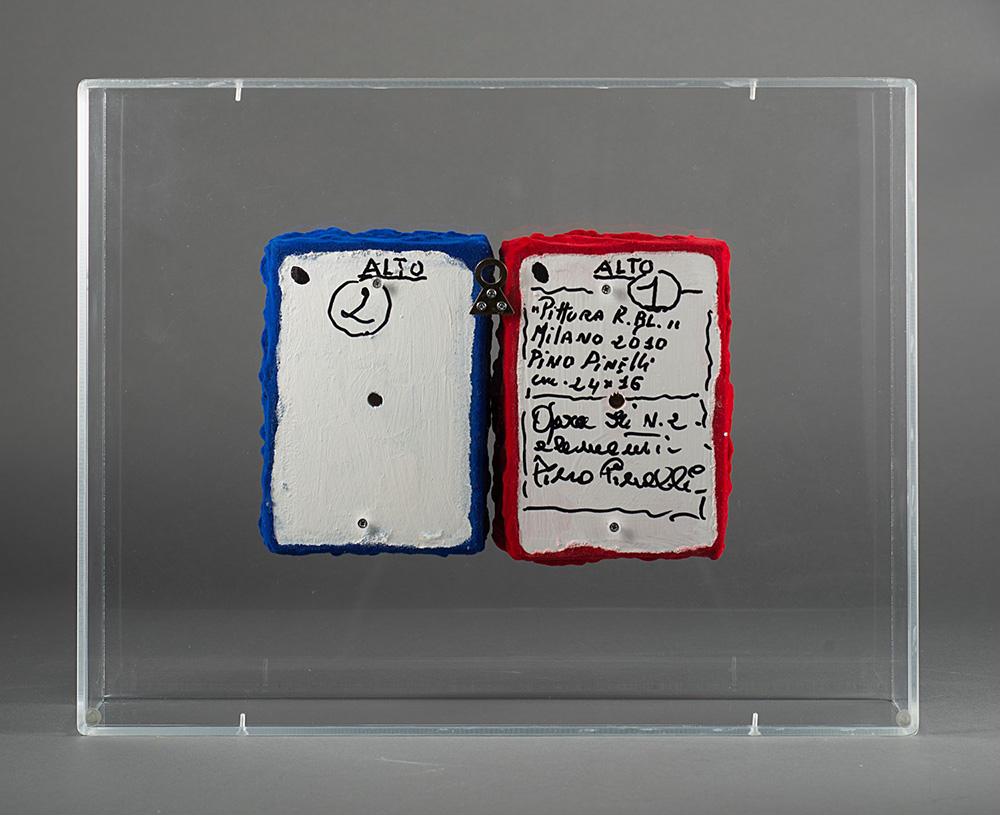 ALTO
2
ALTO
1
"PITTURA R. BL."
MILANO 2010
PINO PINELLI
cm. 24x16
Opera di N. 2
elementi
Pino Pinelli